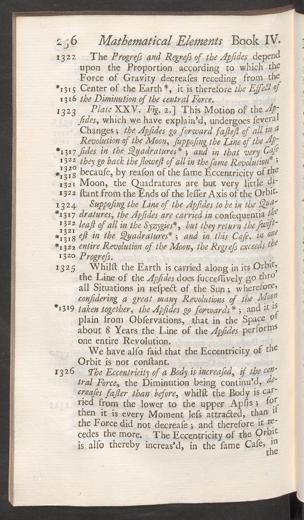 256 Mathematical Elements Book IV.
1322 The Progress and Regress of the Apsides depend
upon the Proportion according to which the
Force of Gravity decreases receding from the
*1315 Center of the Earth*, it is therefore the Effect of
1316 the Diminution of the central Force.
1323 Plate XXV. Fig. 2.] This Motion of the Ap-
sides, which we have explain'd, undergoes several
Changes; the Apsides go forward fastest of all in a
Revolution of the Moon, supposing the Line of the Ap-
*1317 sides in the Quadratures*; and in that very Case
1322 they go back the slowest of all in the same Revolution*;
1320
*1318 because, by reason of the same Eccentricity of the
1321 Moon, the Quadratures are but very little di-
1322 stant from the Ends of the lesser Axis of the Orbit.
1324 Supposing the Line of the Apsides to be in the Qua-
*1317 dratures, the Apsides are carried in consequentia the
1322 least of all in the Syzygies*, but they return the swift-
*1318 est in the Quadratures*; and in this Case, in one
*1322 entire Revolution of the Moon, the Regress exceeds the
1320 Progress.
1325 Whilst the Earth is carried along in its Orbit,
the Line of the Apsides does successively go thro'
all Situations in respect of the Sun; wherefore,
considering a great many Revolutions of the Moon
*1319 taken together, the Apsides go forwards*; and it is
plain from Observations, that in the Space of
about 8 Years the Line of the Apsides performs
one entire Revolution.
We have also said that the Eccentricity of the
Orbit is not constant.
1326 The Eccentricity of a Body is increased, if the cen-
tral Force, the Diminution being continu'd, de-
creases faster than before, whilst the Body is car-
ried from the lower to the upper Apsis; for
then it is every Moment less attracted, than if
the Force did not decrease; and therefore it re-
cedes the more. The Eccentricity of the Orbit
is also thereby increas'd, in the same Case, in
the